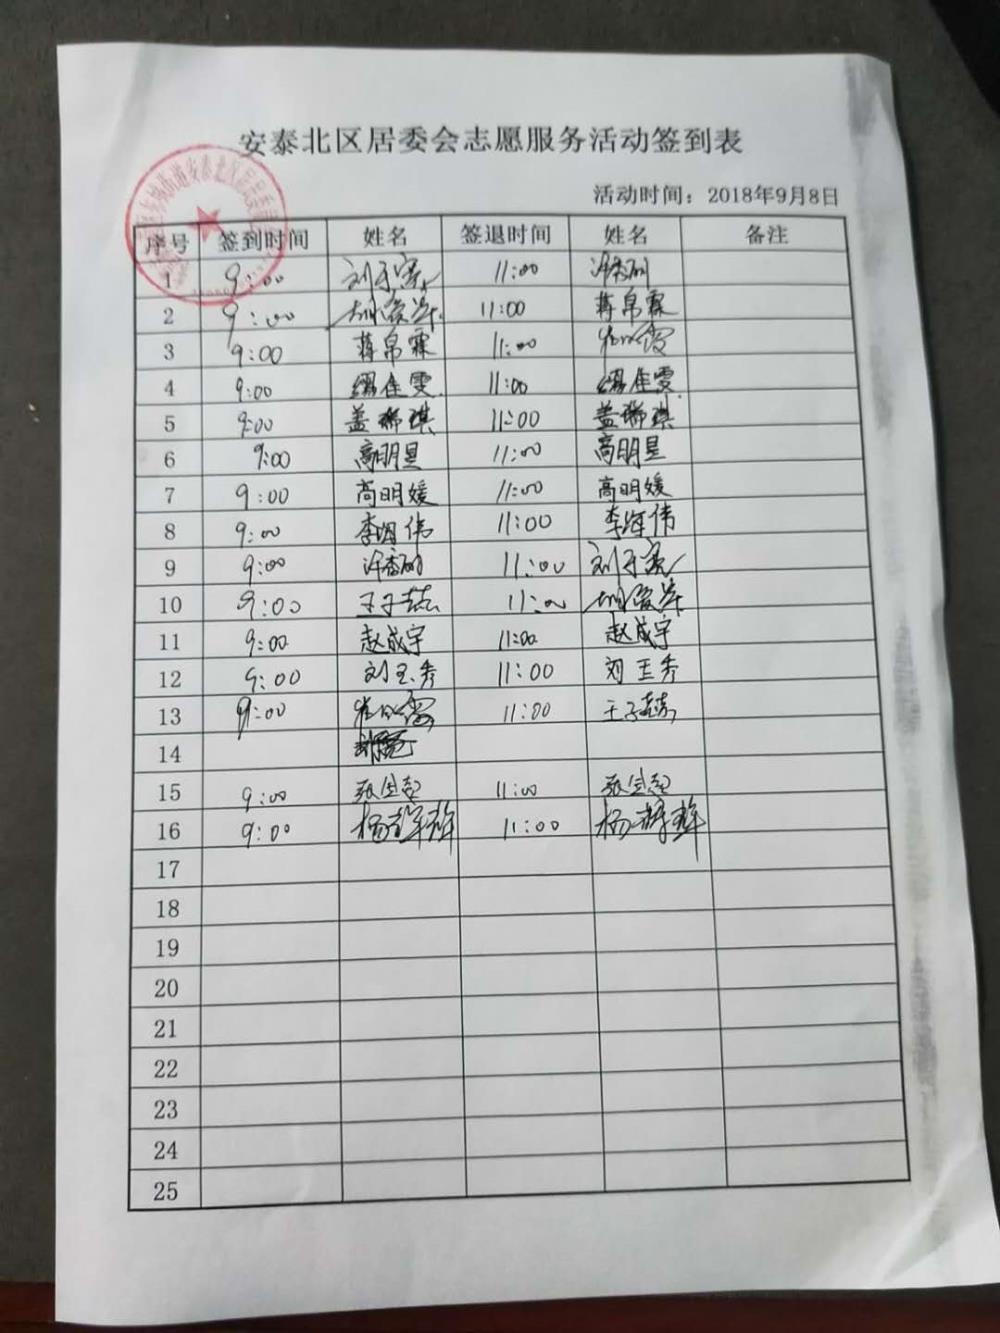 安泰北区居委会志愿服务活动签到表
活动时间：2018年9月8日
序号 签到时间 姓名 签退时间 姓名 备注
1 9:00 11:00 许香丽
2 9:00 11:00 蒋帛霖
3 9:00 蒋帛霖 11:00
4 9:00 缪佳雯 11:00 缪佳雯
5 9:00 盖瑞琪 11:00 盖瑞琪
6 9:00 高明星 11:00 高明星
7 9:00 高明媛 11:00 高明媛
8 9:00 李海伟 11:00 李海伟
9 9:00 许香丽 11:00
10 9:00 王子懿 11:00
11 9:00 赵成宇 11:00 赵成宇
12 9:00 刘玉秀 11:00 刘玉秀
13 9:00 11:00 王子懿
14
15 9:00 11:00
16 9:00 11:00
17
18
19
20
21
22
23
24
25